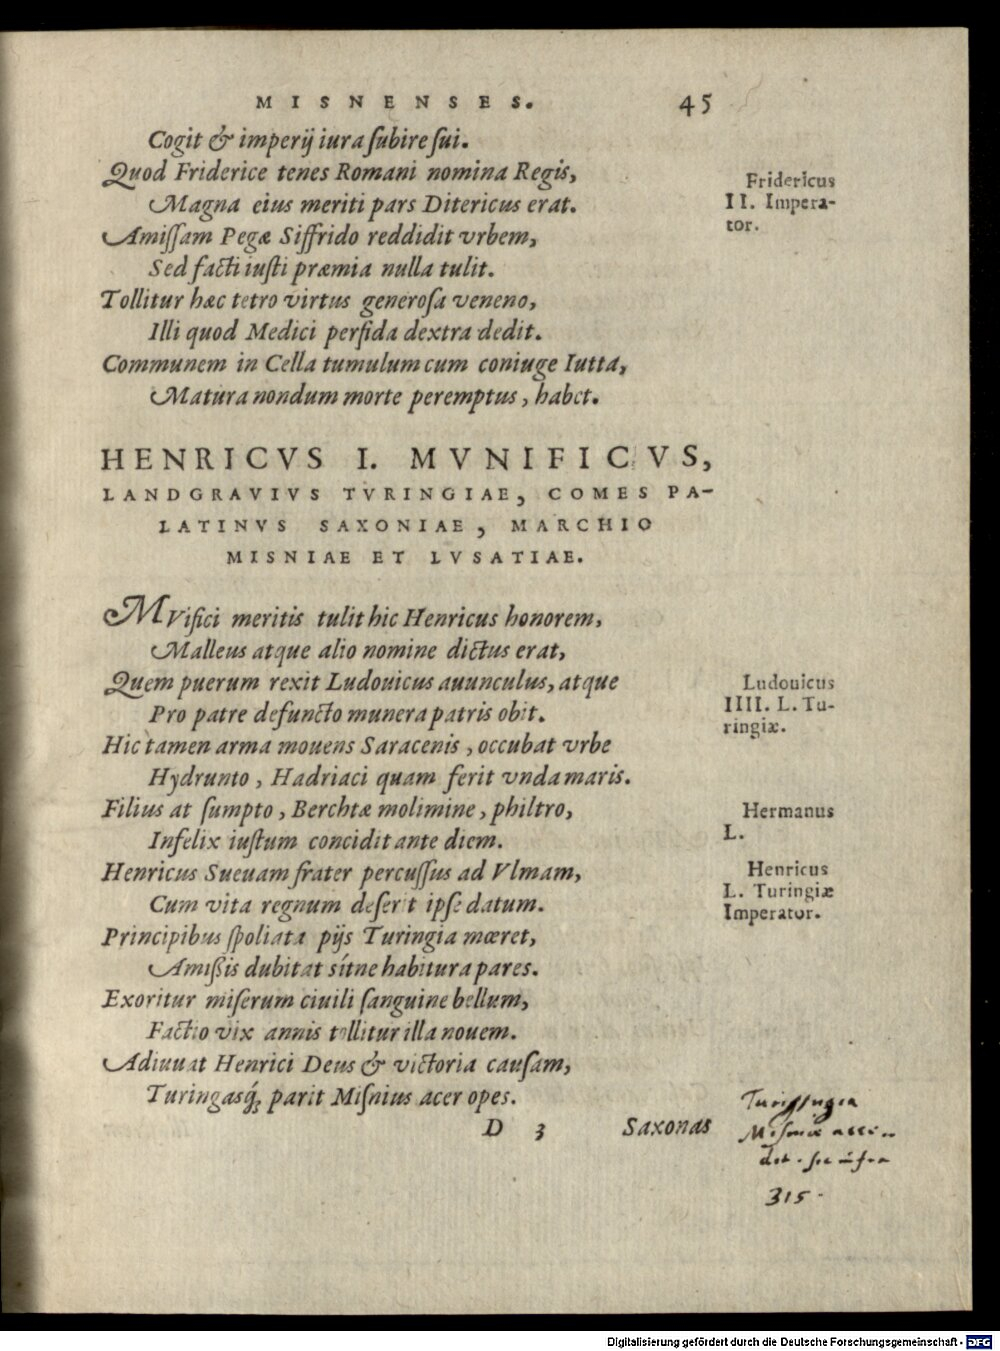 MISNENSES. 45
Cogit & imperij iura ſubire ſui.
Quod Friderice tenes Romani nomina Regis,
Magna eius meriti pars Ditericus erat.
Fridericus
II. Impera-
tor.
Amiſſam Pegæ Siffrido reddidit vrbem,
Sed facti iuſti præmia nulla tulit.
Tollitur hæc tetro virtus generoſa veneno,
Illi quod Medici perfida dextra dedit.
Communem in Cella tumulum cum coniuge Iutta,
Matura nondum morte peremptus, habet.
HENRICVS I. MVNIFICVS,
LANDGRAVIVS TVRINGIAE, COMES PA-
LATINVS SAXONIAE, MARCHIO
MISNIAE ET LVSATIAE.
MVifici meritis tulit hic Henricus honorem,
Malleus atque alio nomine dictus erat,
Quem puerum rexit Ludouicus auunculus, atque
Pro patre defuncto munera patris obit.
Ludouicus
IIII. L. Tu-
ringiæ.
Hic tamen arma mouens Saracenis, occubat vrbe
Hydrunto, Hadriaci quam ferit vnda maris.
Filius at ſumpto, Berchtæ molimine, philtro,
Infelix iuſtum concidit ante diem.
Hermanus
L.
Henricus Sueuam frater percuſſus ad Vlmam,
Cum vita regnum deſerit ipſe datum.
Henricus
L. Turingiæ
Imperator.
Principibus ſpoliata pijs Turingia mœret,
Amißis dubitat sítne habitura pares.
Exoritur miſerum ciuili ſanguine bellum,
Factio vix annis tollitur illa nouem.
Adiuuat Henrici Deus & victoria cauſam,
Turingasq́; parit Miſnius acer opes.
D 3 Saxonas
315.